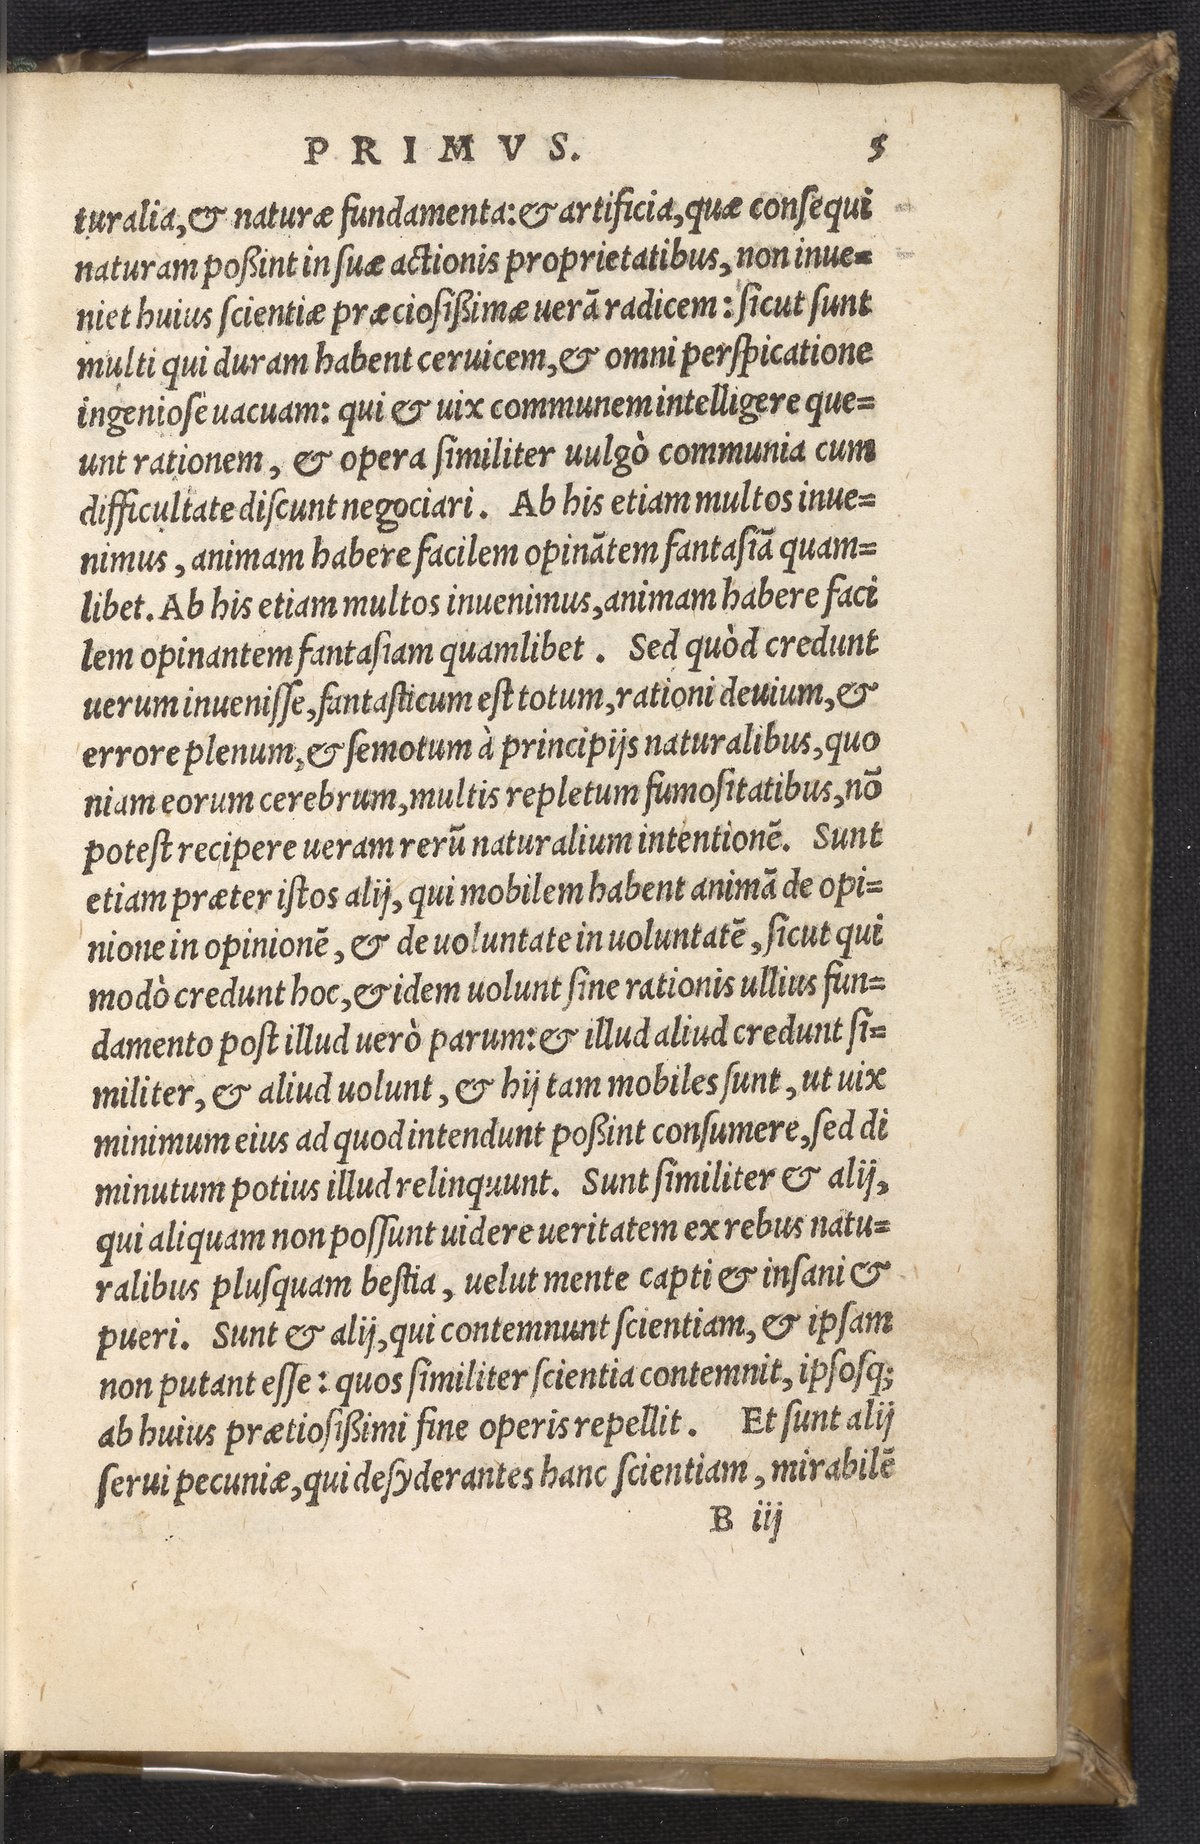 PRIMVS. 5
turalia, & naturæ fundamenta: & artificia, quæ consequi
naturam poßint in suæ actionis proprietatibus, non inue=
niet huius scientiæ præciosißimæ uerã radicem: sicut sunt
multi qui duram habent ceruicem, & omni perspicatione
ingeniose uacuam: qui & uix communem intelligere que=
unt rationem, & opera similiter uulgò communia cum
difficultate discunt negociari. Ab his etiam multos inue=
nimus, animam habere facilem opinãtem fantasiã quam=
libet. Ab his etiam multos inuenimus, animam habere faci
lem opinantem fantasiam quamlibet. Sed quòd credunt
uerum inuenisse, fantasticum est totum, rationi deuium, &
errore plenum, & semotum à principijs naturalibus, quo
niam eorum cerebrum, multis repletum fumositatibus, nõ
potest recipere ueram rerũ naturalium intentionẽ. Sunt
etiam præter istos alij, qui mobilem habent animã de opi=
nione in opinionẽ, & de uoluntate in uoluntatẽ, sicut qui
modò credunt hoc, & idem uolunt sine rationis ullius fun=
damento post illud uerò parum: & illud aliud credunt si=
militer, & aliud uolunt, & hij tam mobiles sunt, ut uix
minimum eius ad quod intendunt poßint consumere, sed di
minutum potius illud relinquunt. Sunt similiter & alij,
qui aliquam non possunt uidere ueritatem ex rebus natu=
ralibus plusquam bestia, uelut mente capti & insani &
pueri. Sunt & alij, qui contemnunt scientiam, & ipsam
non putant esse: quos similiter scientia contemnit, ipsosq;
ab huius prætiosißimi fine operis repellit. Et sunt alij
serui pecuniæ, qui desyderantes hanc scientiam, mirabilẽ
B iij